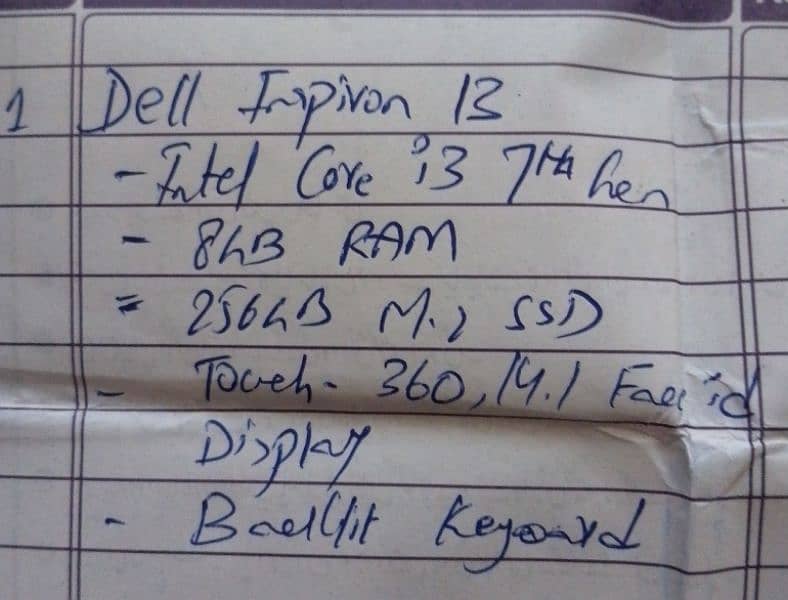 1 Dell Inspiron 13
- Intel Core i3 7TH Gen
- 8GB RAM
= 256GB M.2 SSD
- Touch - 360, 14.1 Face id
Display
- Backlit Keyoard